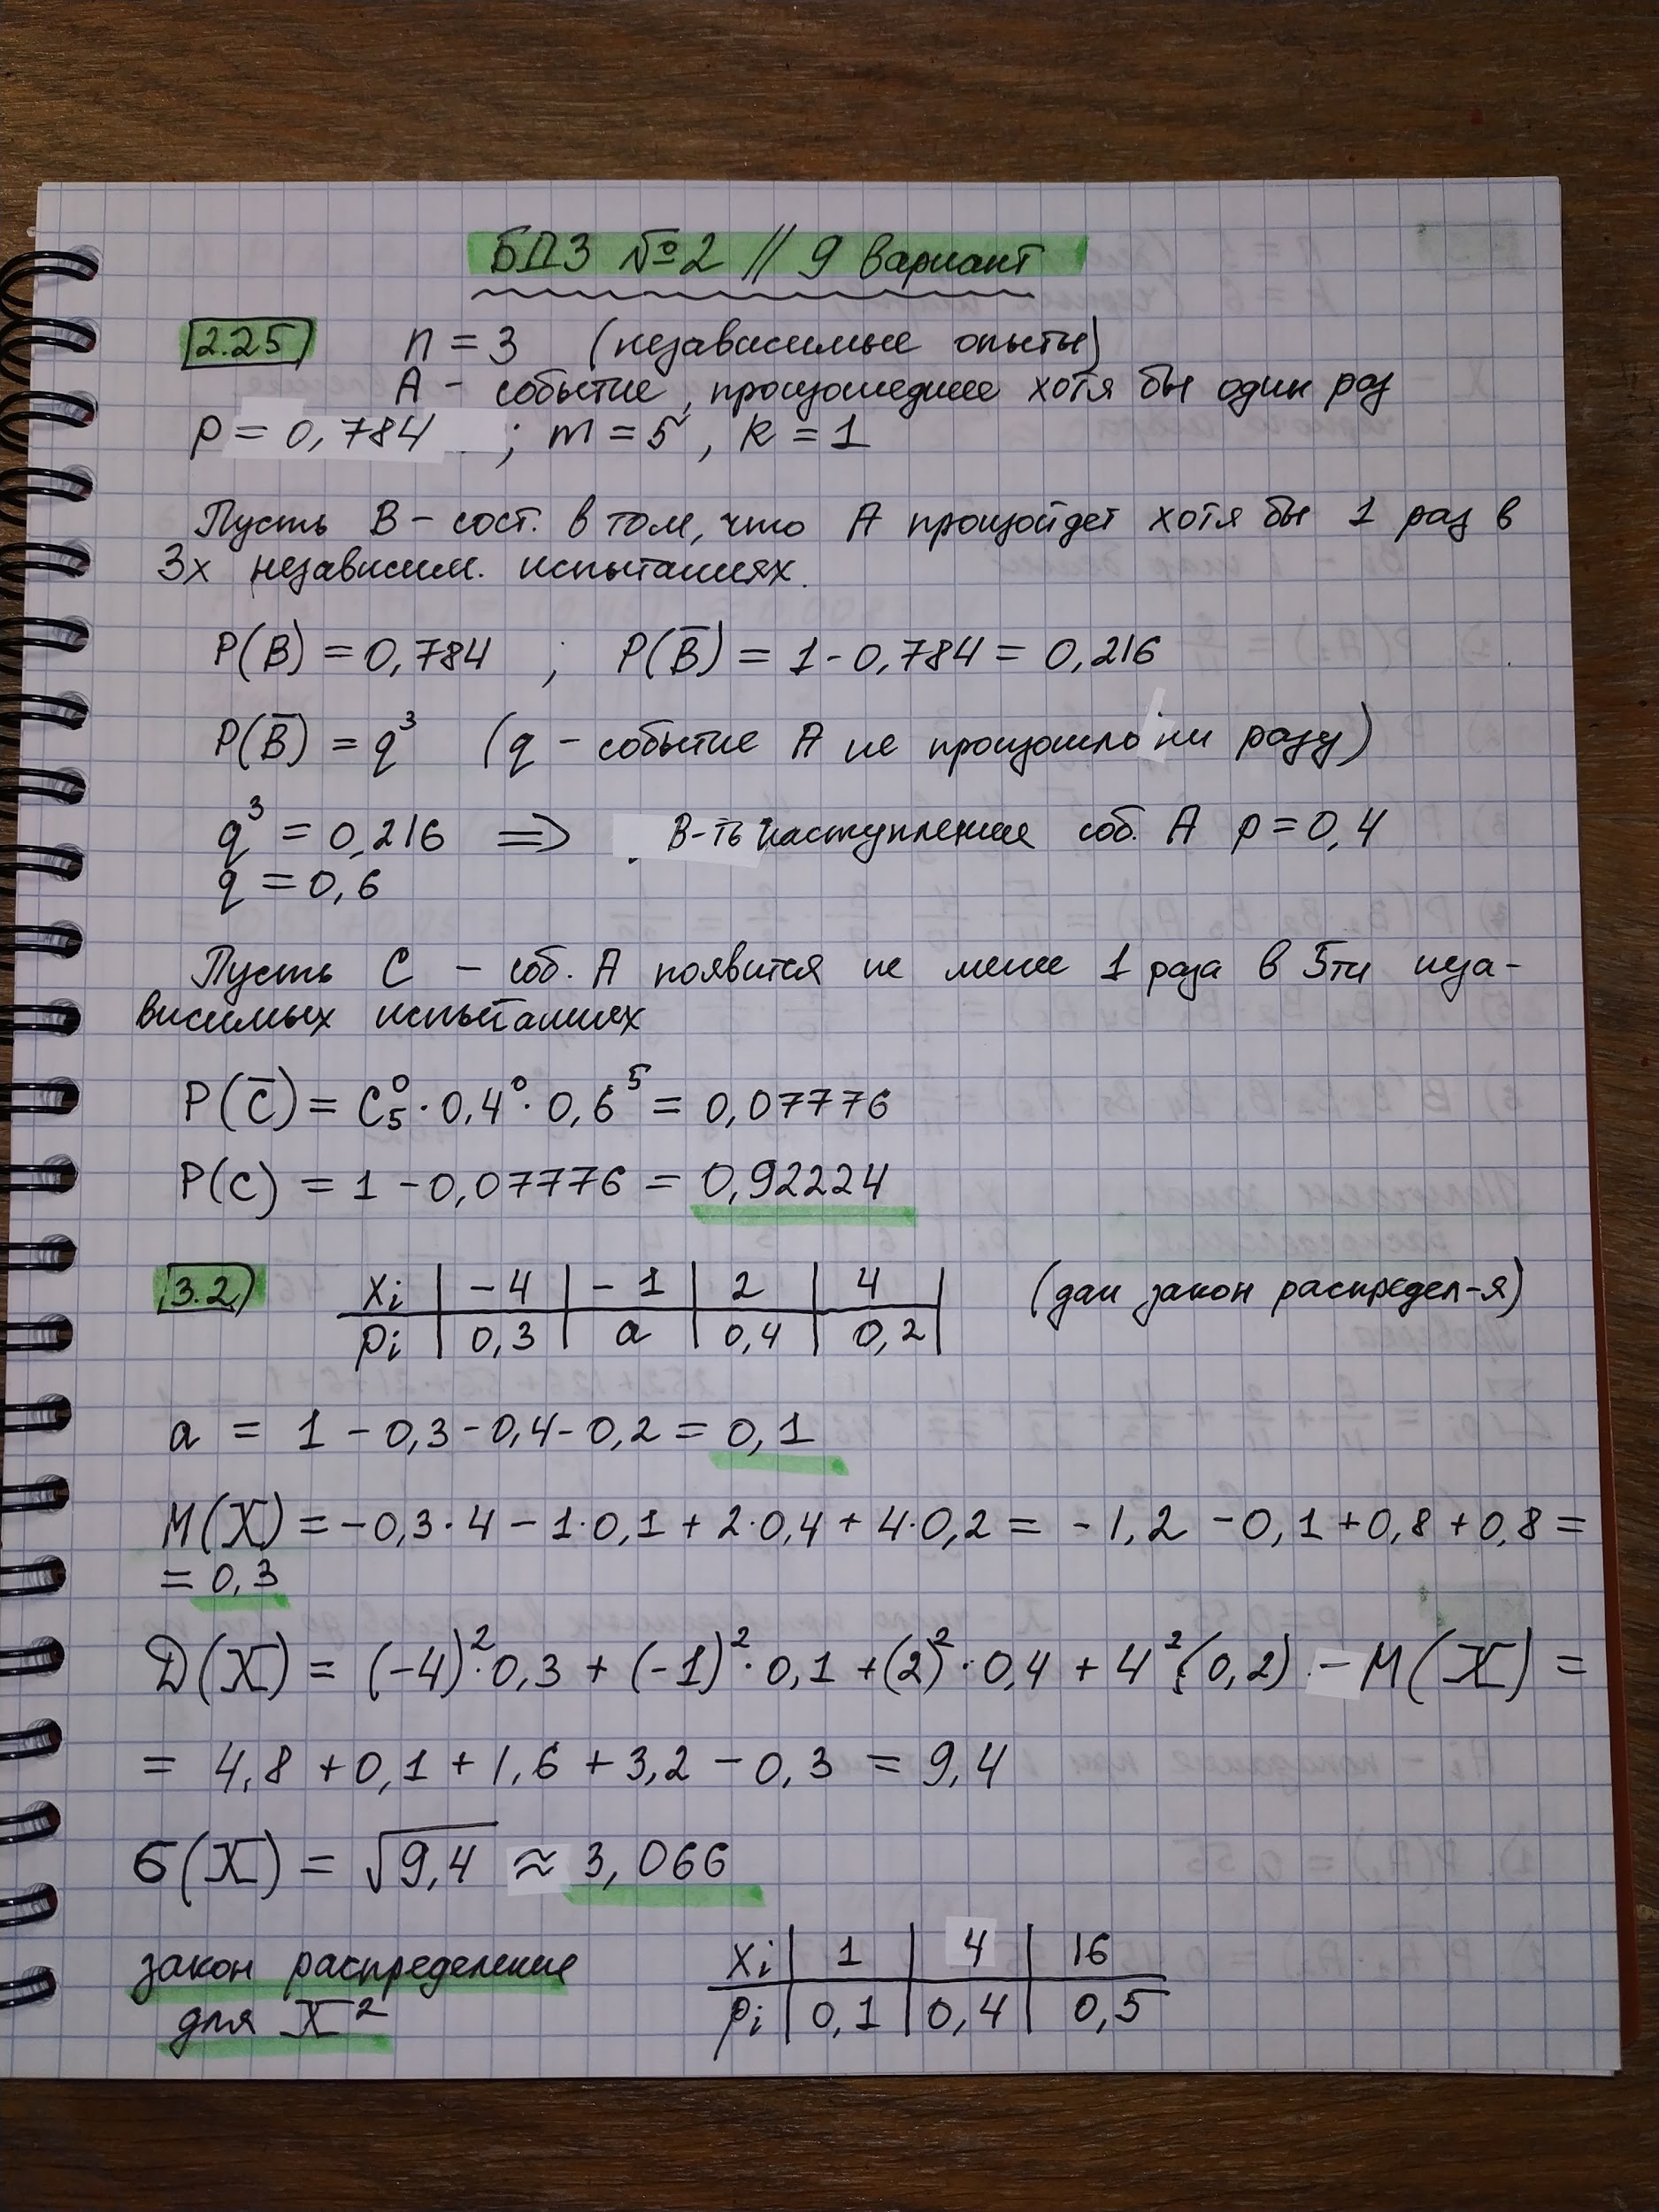 БДЗ №2 // 9 вариант
2.25 n = 3 (независимые опыты)
A - событие, произошедшее хотя бы один раз
p = 0,784 ; m = 5, k = 1
Пусть B - сост. в том, что A произойдет хотя бы 1 раз в
3х независим. испытаниях.
P(B) = 0,784 ; P(B̄) = 1 - 0,784 = 0,216
P(B̄) = q³ (q - событие A не произошло ни разу)
q³ = 0,216 => В-ть наступление соб. A p = 0,4
q = 0,6
Пусть C - соб. A появится не менее 1 раза в 5ти неза-
висимых испытаниях
P(C̄) = C₅⁰ · 0,4⁰ · 0,6⁵ = 0,07776
P(C) = 1 - 0,07776 = 0,92224
3.2 xi | -4 | -1 | 2 | 4 | (дан закон распредел-я)
pi | 0,3 | a | 0,4 | 0,2 |
a = 1 - 0,3 - 0,4 - 0,2 = 0,1
M(X) = -0,3·4 - 1·0,1 + 2·0,4 + 4·0,2 = -1,2 - 0,1 + 0,8 + 0,8 =
= 0,3
D(X) = (-4)²·0,3 + (-1)²·0,1 + (2)²·0,4 + 4²·(0,2) - M(X) =
= 4,8 + 0,1 + 1,6 + 3,2 - 0,3 = 9,4
б(X) = √9,4 ≈ 3,066
закон распределение xi | 1 | 4 | 16
для X² pi | 0,1 | 0,4 | 0,5